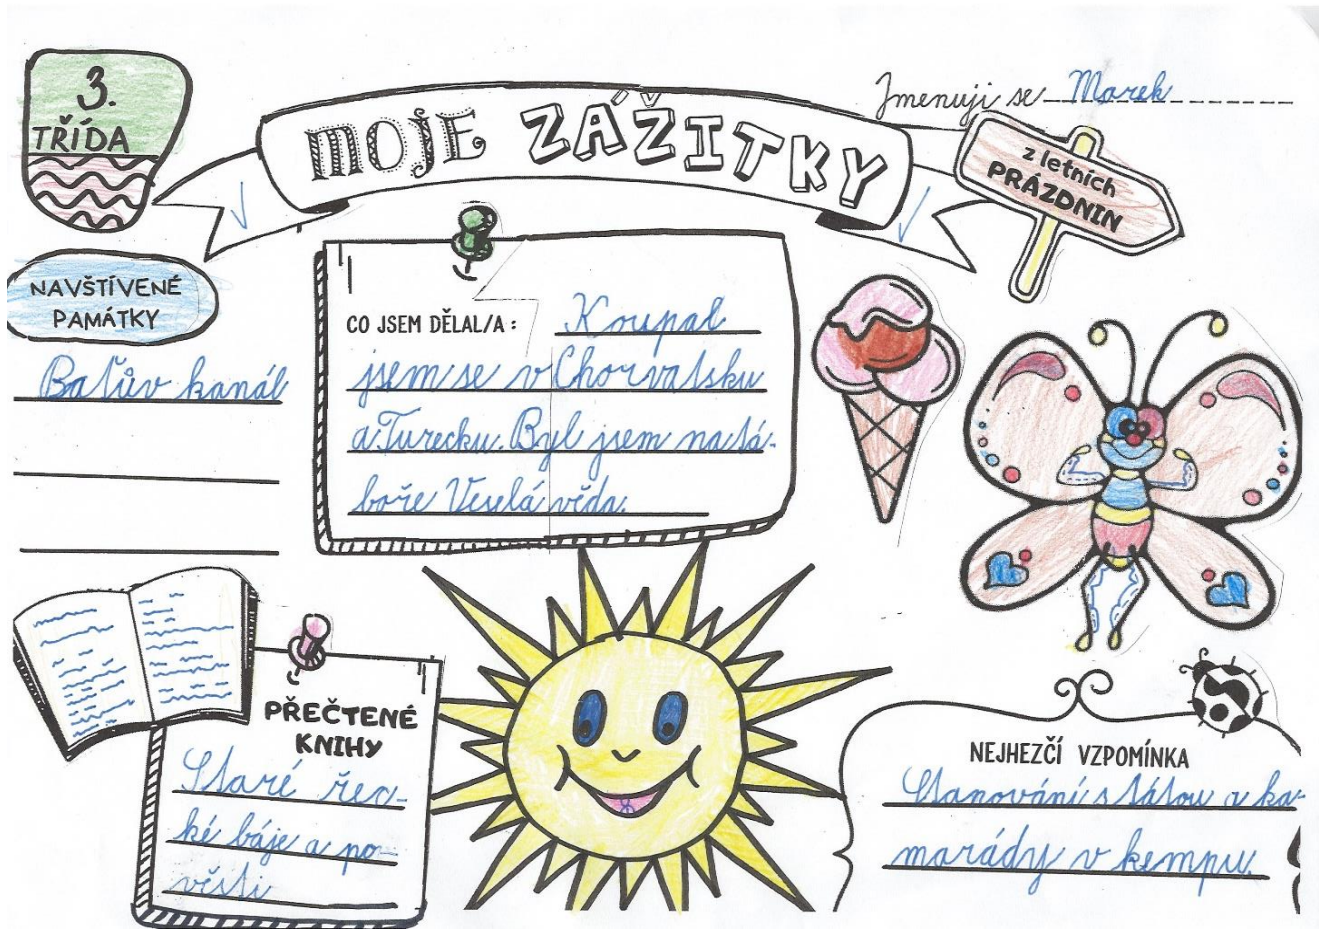 3.
TŘÍDA
Jmenuji se Marek
MOJE ZÁŽITKY
z letních
PRÁZDNIN
NAVŠTÍVENÉ
PAMÁTKY
Baťův kanál
CO JSEM DĚLAL/A: Koupal
jsem se v Chorvatsku
a Turecku. Byl jsem na tá-
boře Veselá věda.
PŘEČTENÉ
KNIHY
Staré řec-
ké báje a po-
věsti
NEJHEZČÍ VZPOMÍNKA
Stanování s tátou a ka-
marády v kempu.